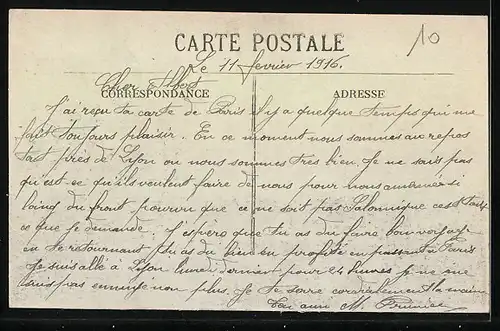 CARTE POSTALE
10
Le 11 février 1916.
Cher Albert
CORRESPONDANCE
ADRESSE
J'ai reçu ta carte de Paris il y a quelque temps qui me
fait toujours plaisir. En ce moment nous sommes au repos
tout près de Lyon ou nous sommes très bien. Je ne sais pas
qu'est-ce qu'ils veulent faire de nous pour nous amener si
loing du front pourvu que ce ne soit pas Salonique ces
ce que je demande. J'espère que tu as du faire bon voyage
en te retournant tu as du bien en profité en passant à Paris
Je suis allé à Lyon dernier pour 24 heures je ne me
suis pas ennuyé non plus. Je te serre cordialement la main
Ton ami M.